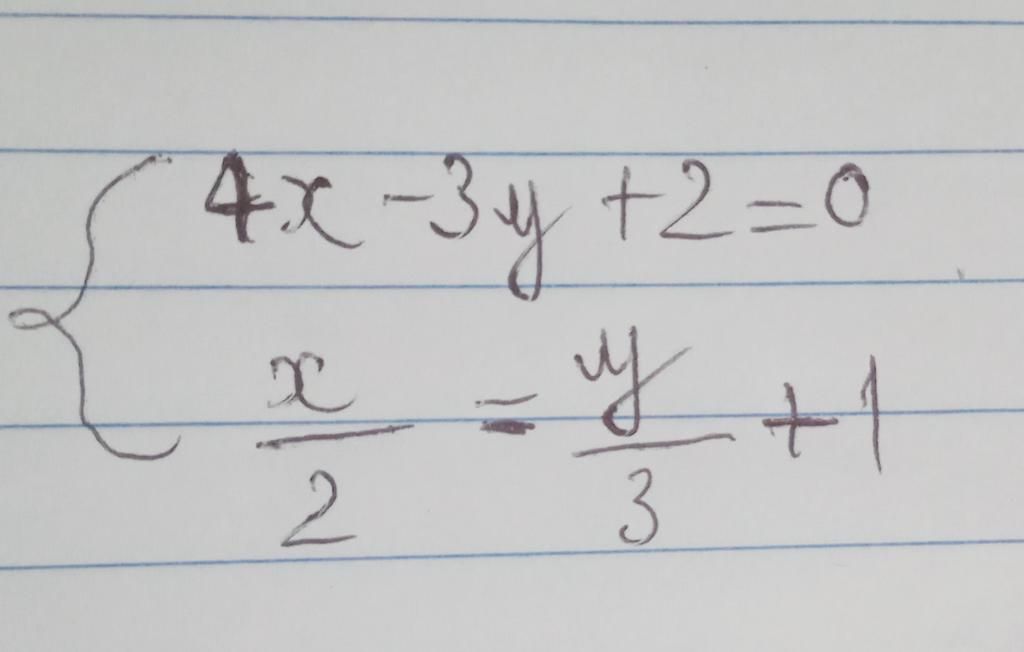 4x - 3y + 2 = 0
x/2 = y/3 + 1